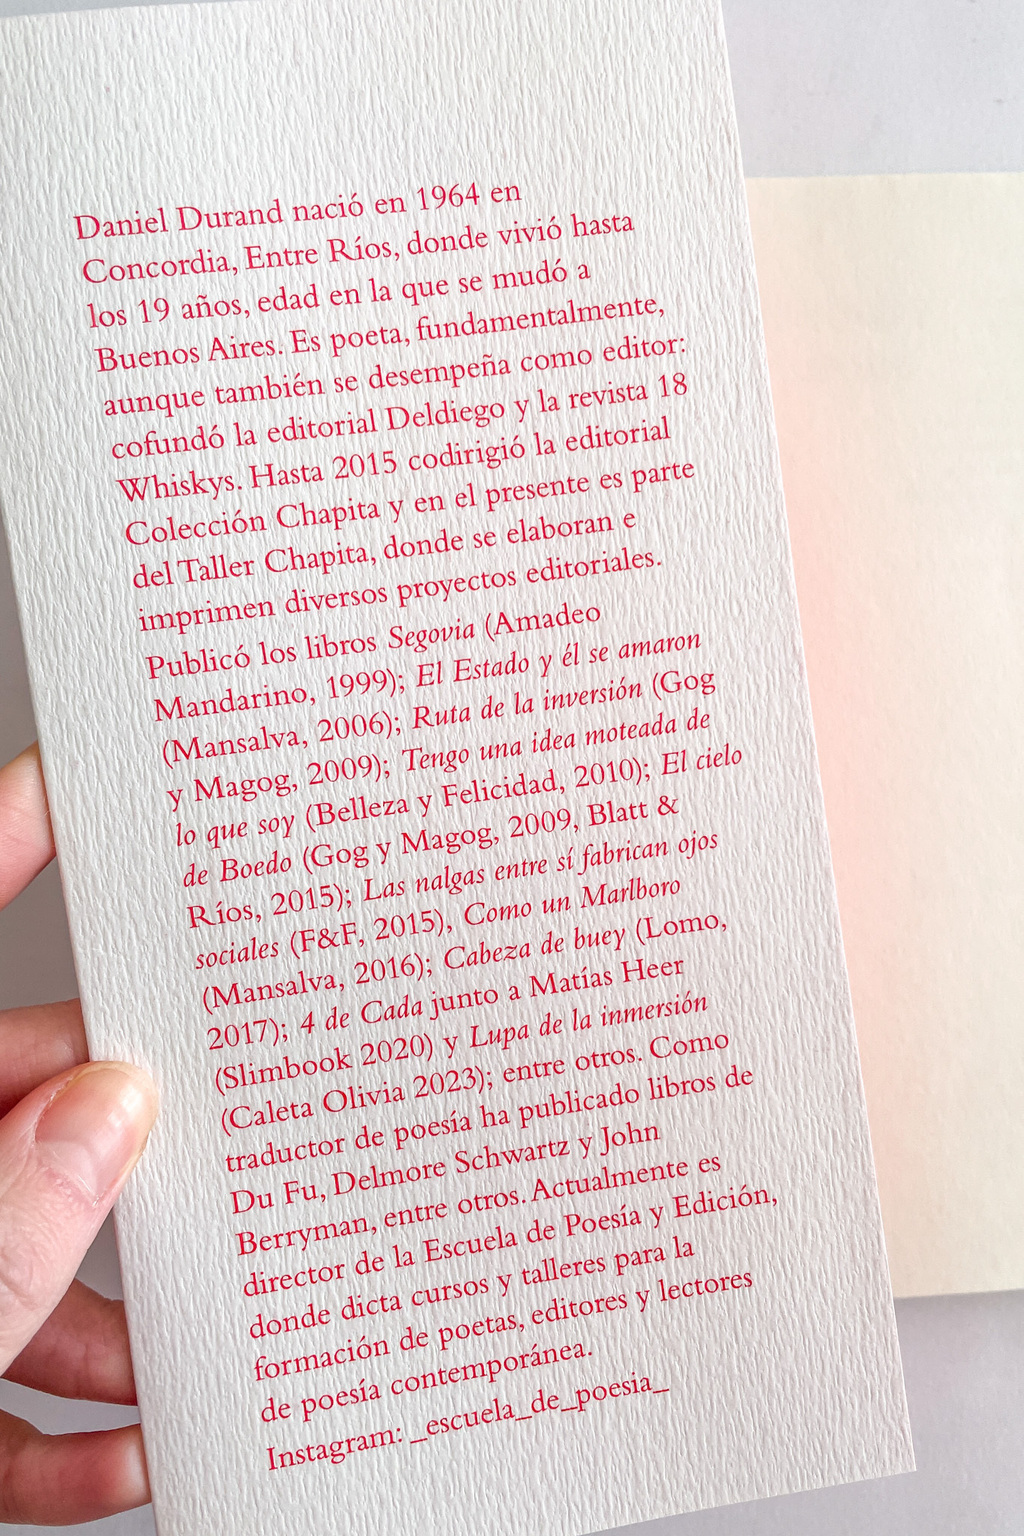 Daniel Durand nació en 1964 en
Concordia, Entre Ríos, donde vivió hasta
los 19 años, edad en la que se mudó a
Buenos Aires. Es poeta, fundamentalmente,
aunque también se desempeña como editor:
cofundó la editorial Deldiego y la revista 18
Whiskys. Hasta 2015 codirigió la editorial
Colección Chapita y en el presente es parte
del Taller Chapita, donde se elaboran e
imprimen diversos proyectos editoriales.
Publicó los libros Segovia (Amadeo
Mandarino, 1999); El Estado y él se amaron
(Mansalva, 2006); Ruta de la inversión (Gog
y Magog, 2009); Tengo una idea moteada de
lo que soy (Belleza y Felicidad, 2010); El cielo
de Boedo (Gog y Magog, 2009, Blatt &
Ríos, 2015); Las nalgas entre sí fabrican ojos
sociales (F&F, 2015), Como un Marlboro
(Mansalva, 2016); Cabeza de buey (Lomo,
2017); 4 de Cada junto a Matías Heer
(Slimbook 2020) y Lupa de la inmersión
(Caleta Olivia 2023); entre otros. Como
traductor de poesía ha publicado libros de
Du Fu, Delmore Schwartz y John
Berryman, entre otros. Actualmente es
director de la Escuela de Poesía y Edición,
donde dicta cursos y talleres para la
formación de poetas, editores y lectores
de poesía contemporánea.
Instagram: _escuela_de_poesia_